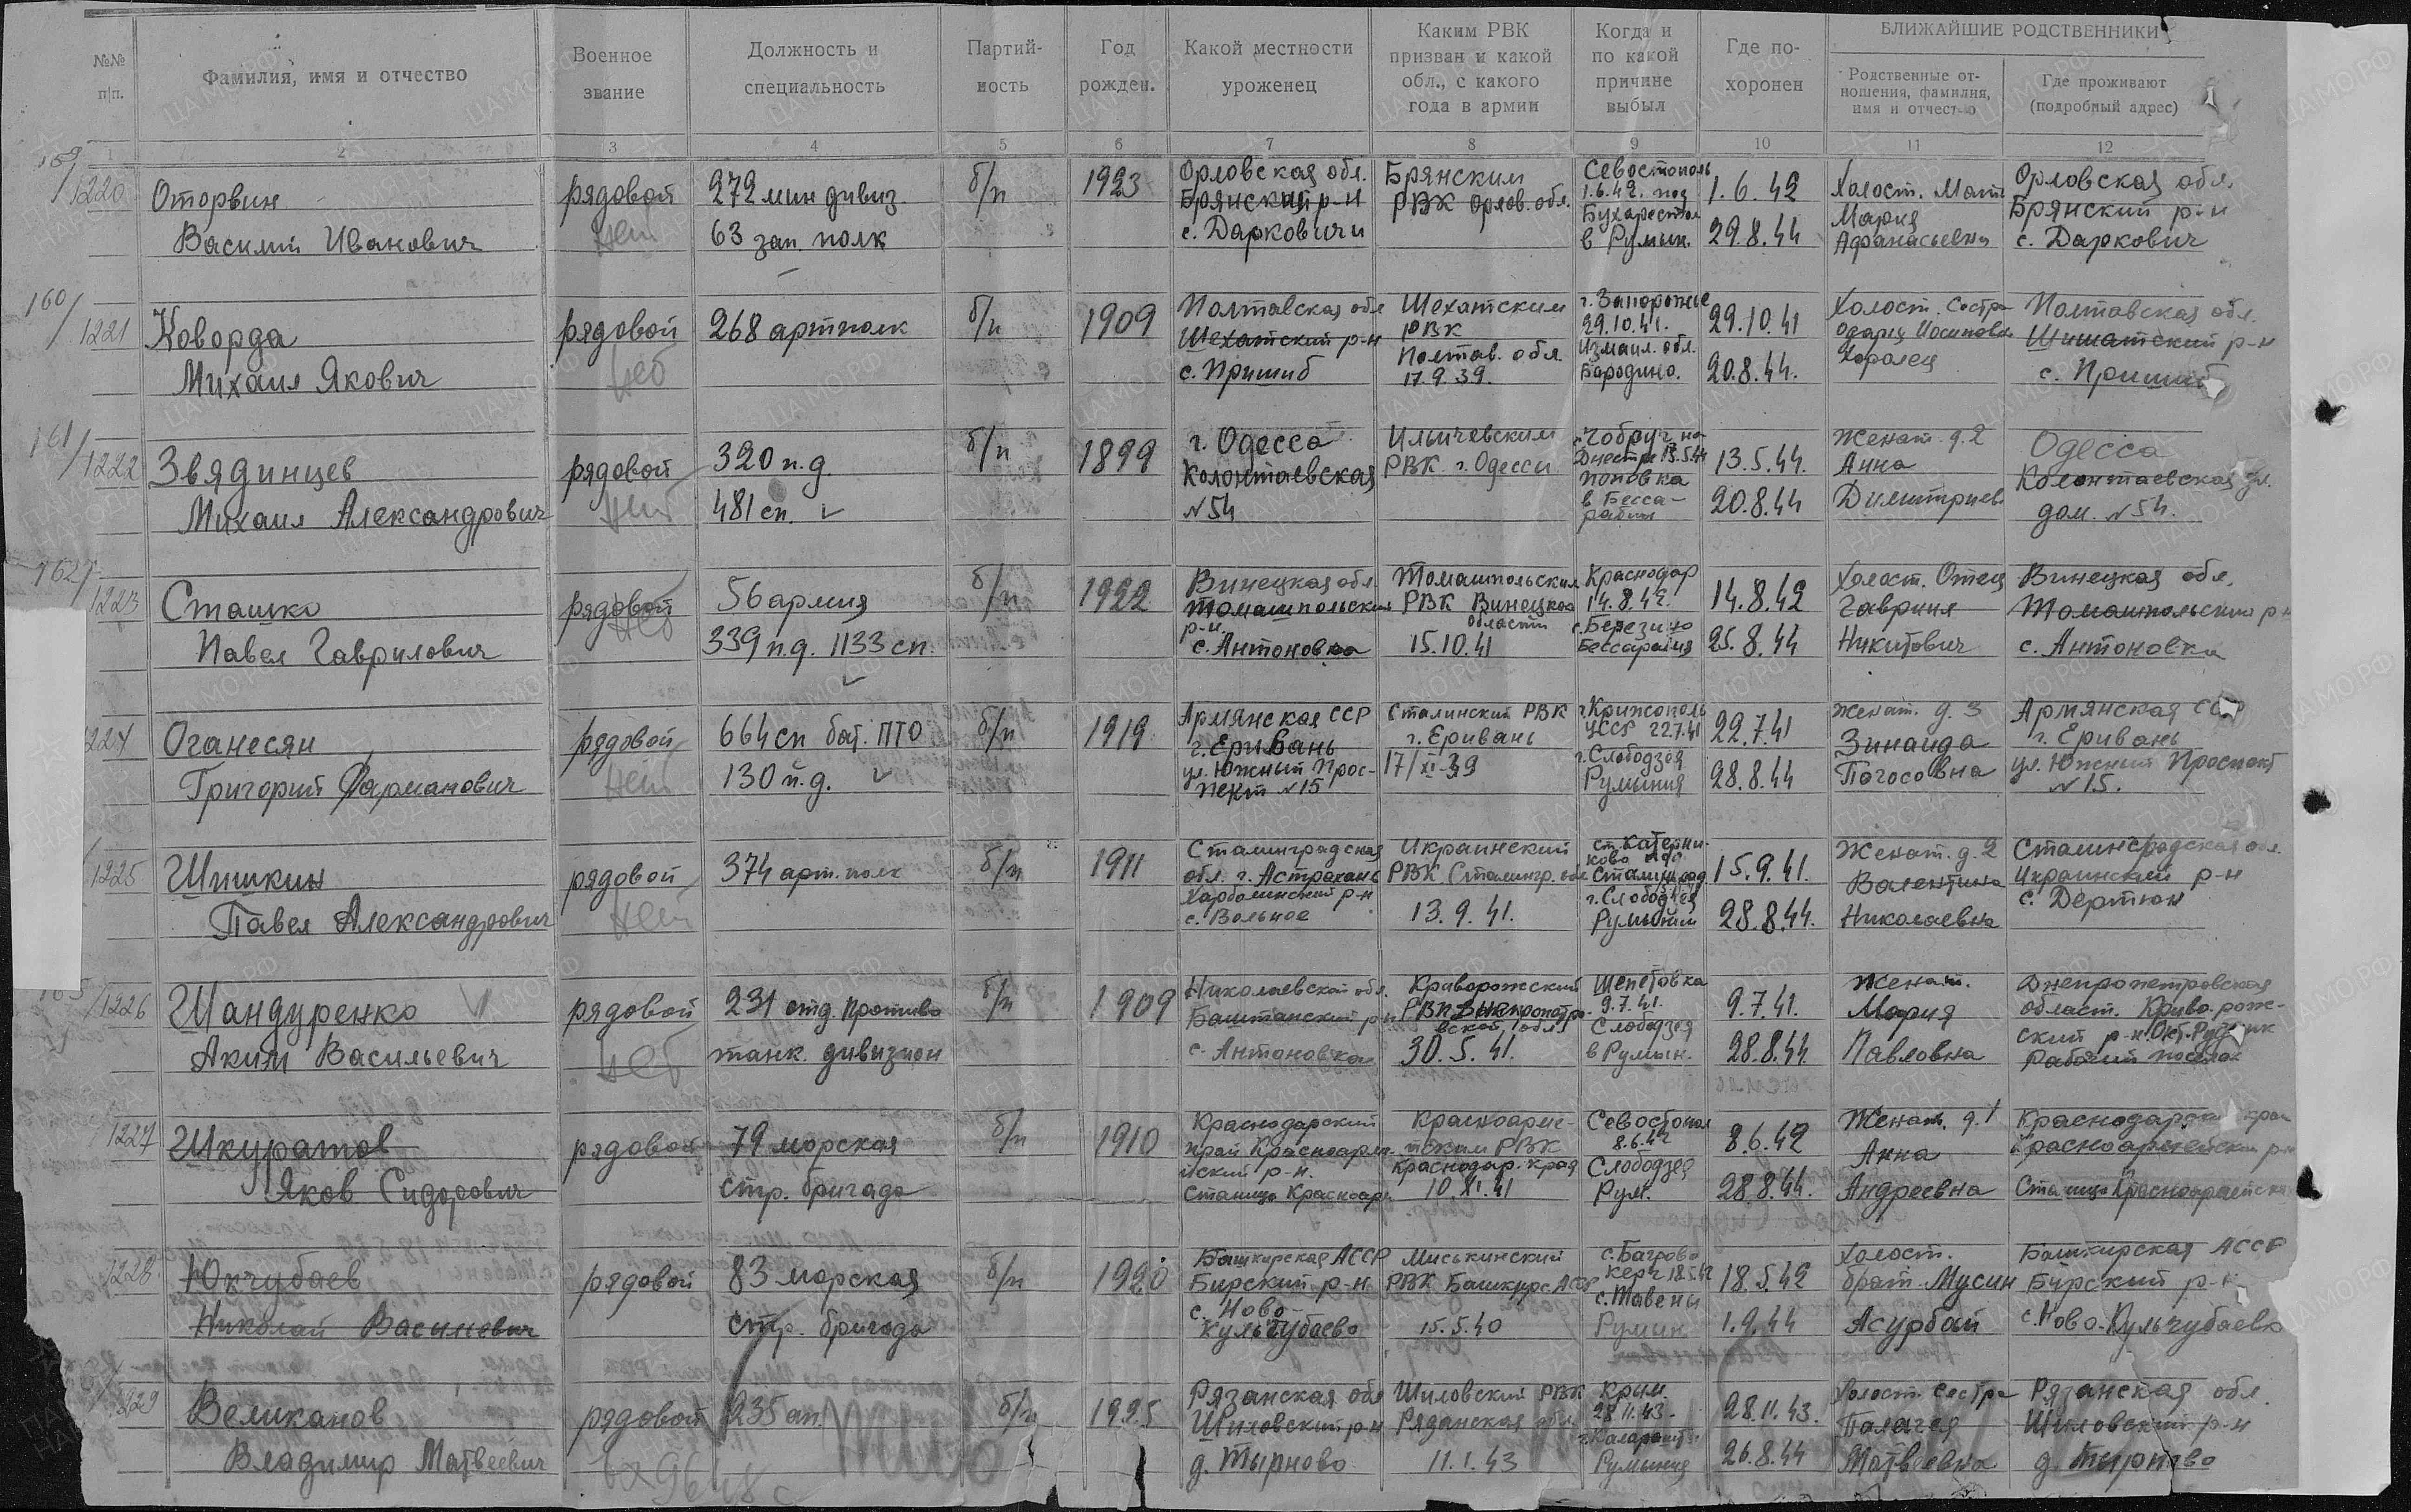 №№ п/п.
Фамилия, имя и отчество
Военное звание
Должность и специальность
Партий-ность
Год рожден.
Какой местности уроженец
Каким РВК призван и какой обл., с какого года в армии
Когда и по какой причине выбыл
Где по-хоронен
БЛИЖАЙШИЕ РОДСТВЕННИКИ
Родственные от-ношения, фамилия, имя и отчество
Где проживают (подробный адрес)
1 2 3 4 5 6 7 8 9 10 11 12
1220 Оторвин рядовой 272 мин дивиз. б/п 1923 Орловская обл. Брянским Севостополь 1.6.42 Холост. Мать Орловская обл.
Василий Иванович нет 63 зап. полк Брянский р-н РВК Орлов. обл. 1.6.42. под Мария Брянский р-н
с. Дарковичи Бухарестом в Румын. 29.8.44 Афанасьевна с. Даркович
160/ 1221 Коворда рядовой 268 артполк б/п 1909 Полтавская обл Шехатским г. Запорожье 29.10.41 Холост. Сестра Полтавская обл.
Михаил Якович Шехатский р-н РВК 29.10.41. Одарка Иосиповна Шишатский р-н
с. Пришиб Полтав. обл. Измаил. обл. Хоралец с. Пришиб
17.9.39. Бародино. 20.8.44.
161/ 1222 Звядинцев рядовой 320 п.д. б/п 1899 г. Одесса Ильичевским Чобруч на 13.5.44. Женат. д.2 Одесса
Михаил Александрович нет 481 сп. Колонтаевская РВК г. Одесси Днестре 13.5.44 Анна Колонтаевская ул.
№54 Поповка в Бесса-рабии 20.8.44 Димитриев дом. №54.
162/ 1223 Сташко рядовой 56 армия б/п 1922 Винецкая обл. Томашпольским Краснодар 14.8.42 Холост. Отец Винецкая обл.
Павел Гаврилович 339 п.д. 1133 сп. Томашпольский р-н РВК Винецкой области 14.8.42. Гаврил Томашпольский р-н
с. Антоновка 15.10.41 с. Березино Бессарабия 25.8.44 Никитович с. Антоновка
1224 Оганесян рядовой 664 сп бат. ПТО б/п 1919 Армянская ССР Сталинский РВК г. Крижополь 22.7.41 Женат. д. 3 Армянская ССР
Григорий Фарманович нет 130 п.д. г. Еривань г. Еривань УССР 22.7.41 Зинаида г. Еривань
ул. Южный Прос-пект №15 17/XI.39 г. Слободзея Румыния 28.8.44 Погосовна ул. Южный Проспект №15.
1225 Шишкин рядовой 374 арт. полк б/п 1911 Сталинградская Икраинский ст. Катерни-ково под 15.9.41. Женат. д. 2 Сталинградская обл.
Павел Александрович нет обл. г. Астрахань РВК Сталингр. обл Сталинград Валентина Икраинский р-н
Харболинский р-н с. Вольное 13.9.41. г. Слободзея Румынии 28.8.44. Николаевна с. Дертюн
1226 Шандуренко рядовой 231 отд. противо б/п 1909 Николаевской обл. Криворожский Шепетовка 9.7.41. Женат. Днепропетровская
Аким Васильевич танк. дивизион Баштанский р-н РВК Днепропетро-вской обл. 9.7.41. Мария област. Криворож-ский р-н. Окт. Рудник
с. Антоновка 30.5.41. Слободзея в Румын. 28.8.44 Павловна Рабочий поселок
1227 Шкуратов рядовой 79 морская б/п 1910 Краснодарский Красноарме- Севостопол 8.6.42 Женат. д.1 Краснодарский край
Яков Сидорович стр. бригада край Красноарм-йский р-н. йским РВК 8.6.42 Анна Красноармейский р-н
Станица Красноар. Краснодар. края 10.XI.41 Слободзея Рум. 28.8.44. Андреевна Станица Красноармейская
1228 Юкчубаев рядовой 83 морская б/п 1920 Башкирская АССР Миськинский с. Багрово 18.5.42 Холост. Башкирская АССР
Николай Василевич стр. бригада Бирский р-н РВК Башкирс АССР Керч 18.5.42 брат Мусин Бирский р-н
с. Ново-Кульчубаево 15.5.40 с. Тавены Румын 1.9.44 Асурбай с. Ново-Кульчубаево
1229 Великанов рядовой 235 ап. б/п 1925 Рязанская обл Шиловский РВК Крым. 28.11.43. Холост Сестра Рязанская обл.
Владимир Матвеевич Шиловский р-н Рязанская обл. 28.11.43. Палагея Шиловский р-н
д. Тырново 11.1.43 г. Каларашт Румыния 26.8.44 Матвеевна д. Тырново